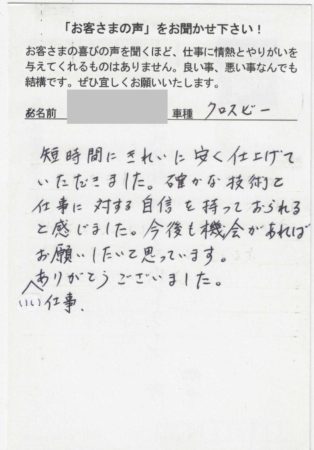 「お客さまの声」をお聞かせ下さい！
お客さまの喜びの声を聞くほど、仕事に情熱とやりがいを
与えてくれるものはありません。良い事、悪い事なんでも
結構です。ぜひ宜しくお願いいたします。
お名前 車種 クロスビー
短時間にきれいに安く仕上げて
いただきました。確かな技術と
仕事に対する自信を持っておられる
と感じました。今後も機会があれば
お願いしたいて思っています。
ありがとうございました。
いい仕事、